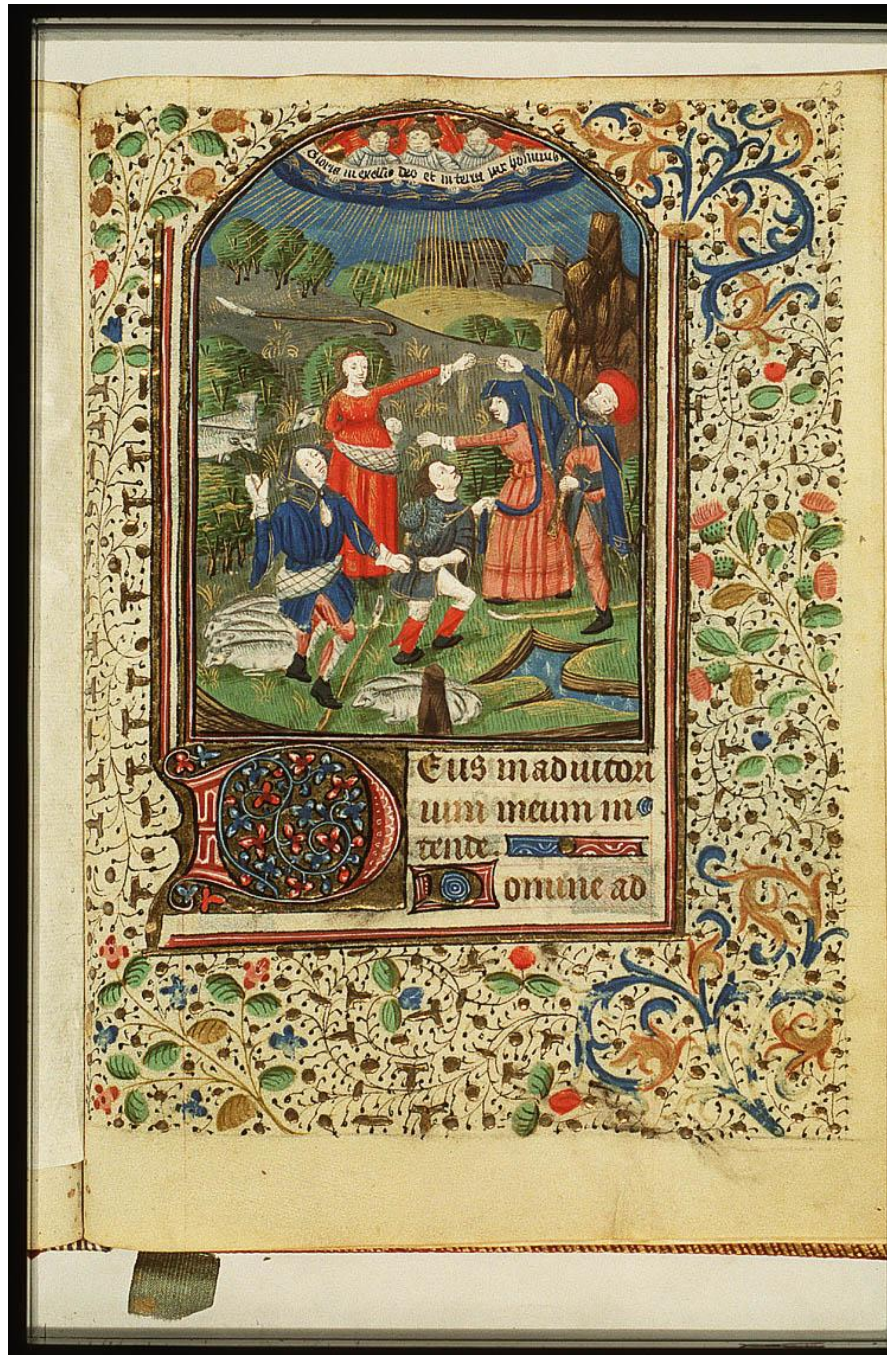 53
Gloria in excelsis Deo et in terra pax hominib
Deus in adiutori
um meum in
tende.
Domine ad